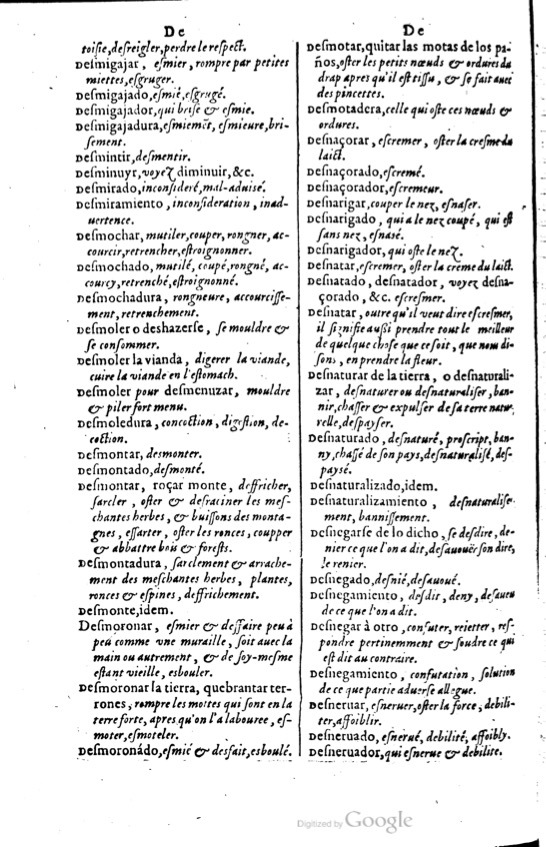 De
toisie, desreigler, perdre le respect.
Desmigajar, esmier, rompre par petites
miettes, esgruger.
Desmigajado, esmié, esgrugé.
Desmigajador, qui brise & esmie.
Desmigajadura, esmiemẽt, esmieure, bri-
sement.
Desmintir, desmentir.
Desminuyr, voyez diminuir, &c.
Desmirado, inconsideré, mal-aduisé.
Desmiramiento, inconsideration, inad-
uertence.
Desmochar, mutiler, couper, rongner, ac-
courcir, retrencher, estroignonner.
Desmochado, mutilé, coupé, rongné, ac-
courcy, retrenché, estroignonné.
Desmochadura, rongneure, accourcisse-
ment, retrenchement.
Desmoler o deshazerse, se mouldre &
se consommer.
Desmoler la vianda, digerer la viande,
cuire la viande en l'estomach.
Desmoler por desmenuzar, mouldre
& piler fort menu.
Desmoledura, concoction, digestion, de-
coction.
Desmontar, desmonter.
Desmontado, desmonté.
Desmontar, roçar monte, deffricher,
sarcler, oster & desraciner les mes-
chantes herbes, & buissons des monta-
gnes, essarter, oster les ronces, coupper
& abbattre bois & forests.
Desmontadura, sarclement & arrache-
ment des meschantes herbes, plantes,
ronces & espines, deffrichement.
Desmonte, idem.
Desmoronar, esmier & deffaire peu à
peu comme vne muraille, soit auec la
main ou autrement, & de soy-mesme
estant vieille, esbouler.
Desmoronar la tierra, quebrantar ter-
rones, rompre les mottes qui sont en la
terre forte, apres qu'on l'a labouree, es-
moter, esmoteler.
Desmoronádo, esmié & desfait, esboulé.
De
Desmotar, quitar las motas de los pa-
ños, oster les petits nœuds & ordures du
drap apres qu'il est tissu, & se fait auec
des pincettes.
Desmotadera, celle qui oste ces nœuds &
ordures.
Desnaçorar, escremer, oster la cresme du
laict.
Desnaçorado, escremé.
Desnaçorador, escremeur.
Desnarigar, couper le nez, esnaser.
Desnarigado, qui a le nez coupé, qui est
sans nez, esnasé.
Desnarigador, qui oste le nez.
Desnatar, escremer, oster la crème du laict.
Desnatado, desnatador, voyez desna-
çorado, &c. escresmer.
Desnatar, outre qu'il veut dire escresmer,
il signifie aussi prendre tout le meilleur
de quelque chose que ce soit, que nous di-
sons, en prendre la fleur.
Desnaturar de la tierra, o desnaturali-
zar, desnaturer ou desnaturaliser, ban-
nir, chasser & expulser de sa terre natu-
relle, despayser.
Desnaturado, desnaturé, proscript, ban-
ny, chassé de son pays, desnaturalisé, des-
paysé.
Desnaturalizado, idem.
Desnaturalizamiento, desnaturalise-
ment, bannissement.
Desnegarse de lo dicho, se desdire, de-
nier ce que l'on a dit, desauoüer son dire,
le renier.
Desnegado, desnié, desauoué.
Desnegamiento, desdit, deny, desaueu
de ce que l'on a dit.
Desnegar à otro, confuter, reietter, res-
pondre pertinemment & soudre ce qui
est dit au contraire.
Desnegamiento, confutation, solution
de ce que partie aduerse allegue.
Desneruar, esneruer, oster la force, debili-
ter, affoiblir.
Desneruado, esnerué, debilité, affoibly.
Desneruador, qui esnerue & debilite.
Digitized by Google